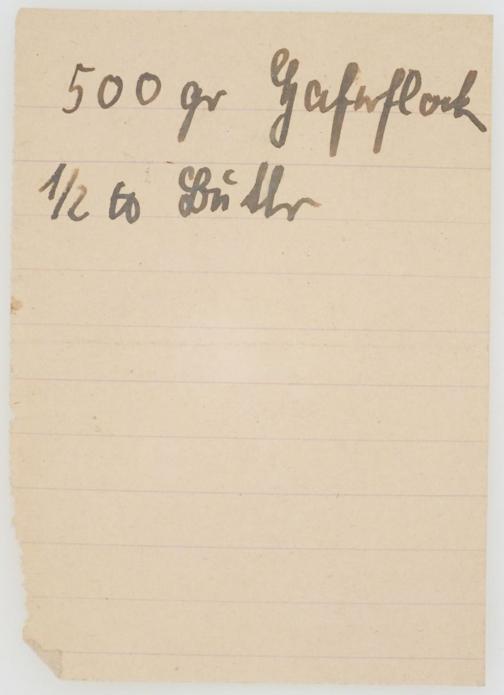 500 gr Haferflock
1/2 ℔ Buttr